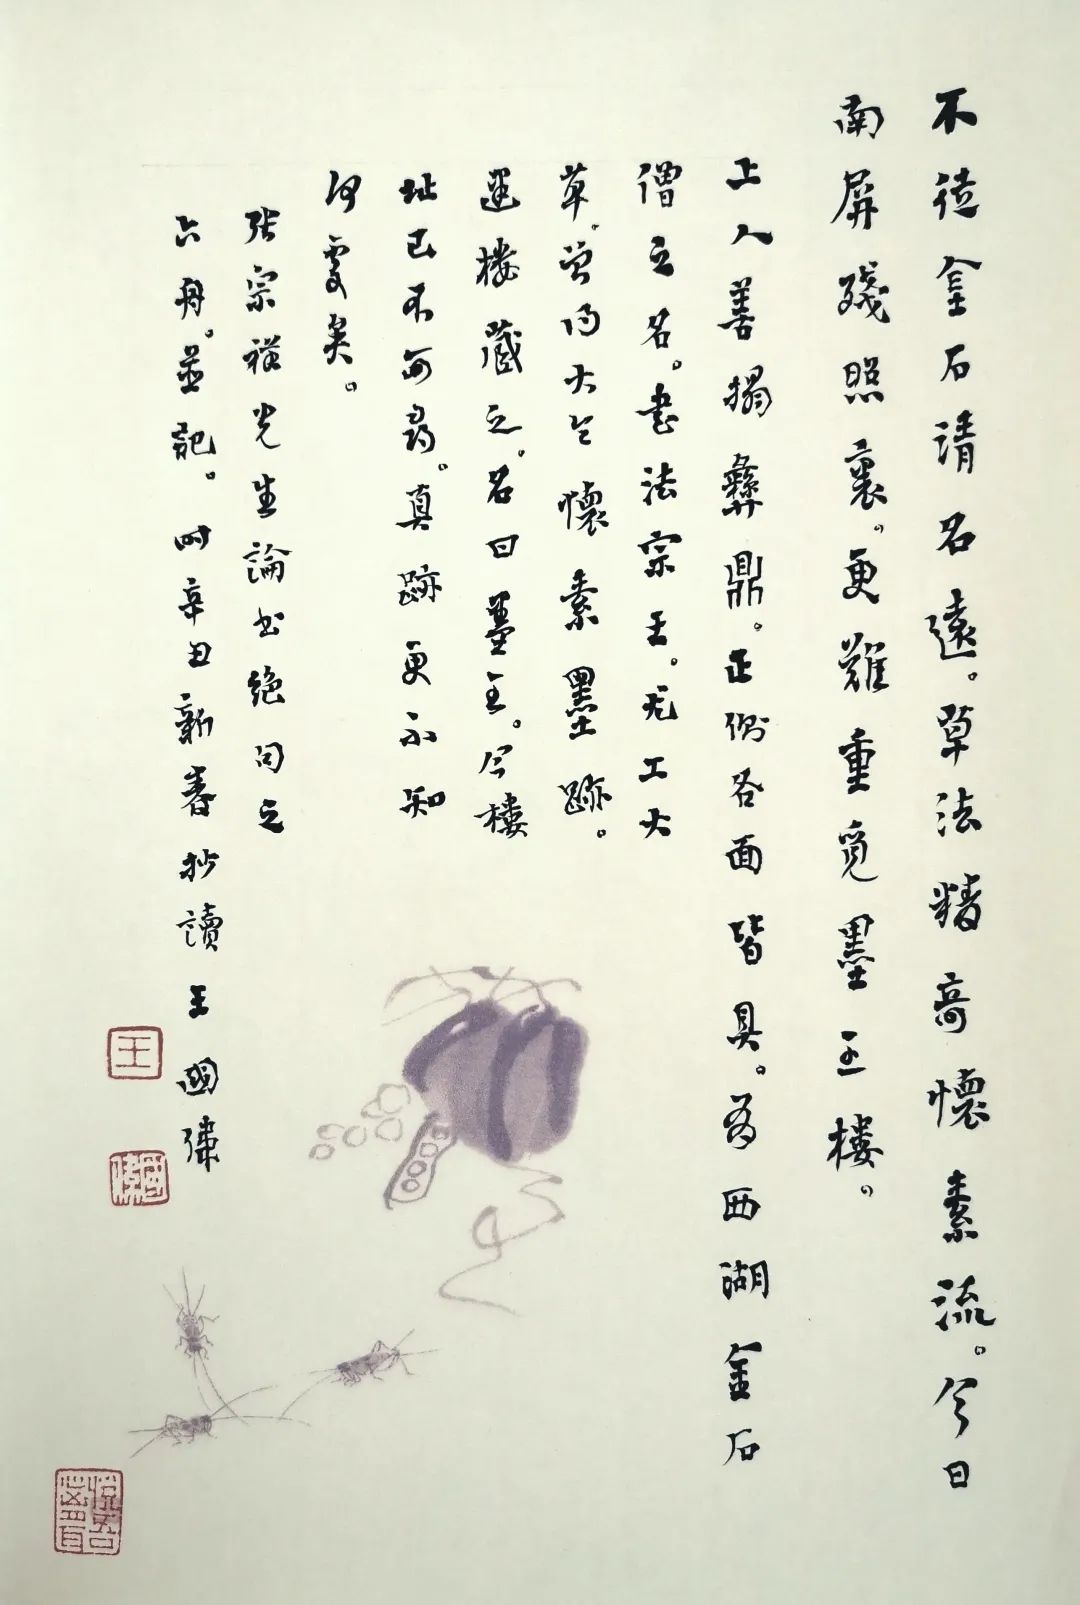 不徒金石請名遠。草法精奇懷素流。今日
南屏殘照裏。更難重覓墨王樓。
上人善搨彝鼎。正側各面皆具。有西湖金石
僧之名。書法宗王。尤工大
草。曾得大令懷素墨跡。
選樓藏之。名曰墨王。今樓
址已不可尋。真跡更不知
何處矣。
張宗祥先生論书絕句之
六舟。並記。时辛丑新春抄讀王國瑋
王